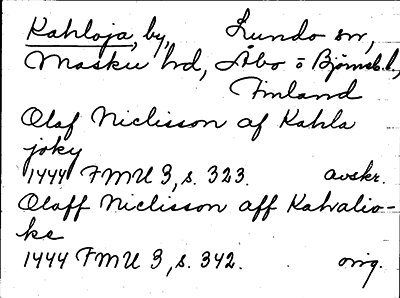 Kahloja, by, Lundo sn,
Masku hd, Åbo o Björneb. l.,
Finland
Olaf Niclisson af Kahla
joky
1444 FMU 3, s. 323. avskr.
Olaff Niclisson aff Kahalio-
ke
1444 FMU 3, s. 342. orig.